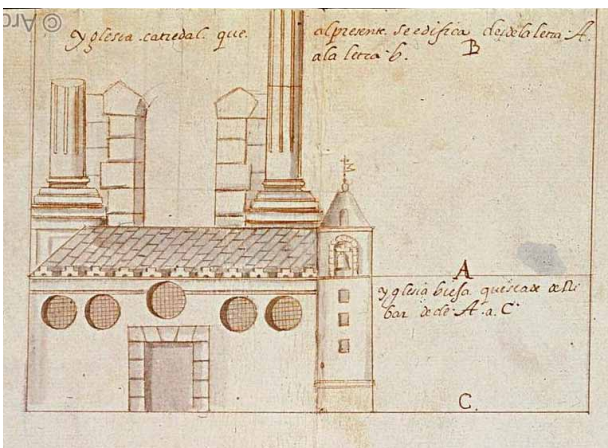 Yglesia catredal que alpresente se edifica desde la letra A.
ala letra b.
B
A
yglesia biesa que
bar A. a. C
C.